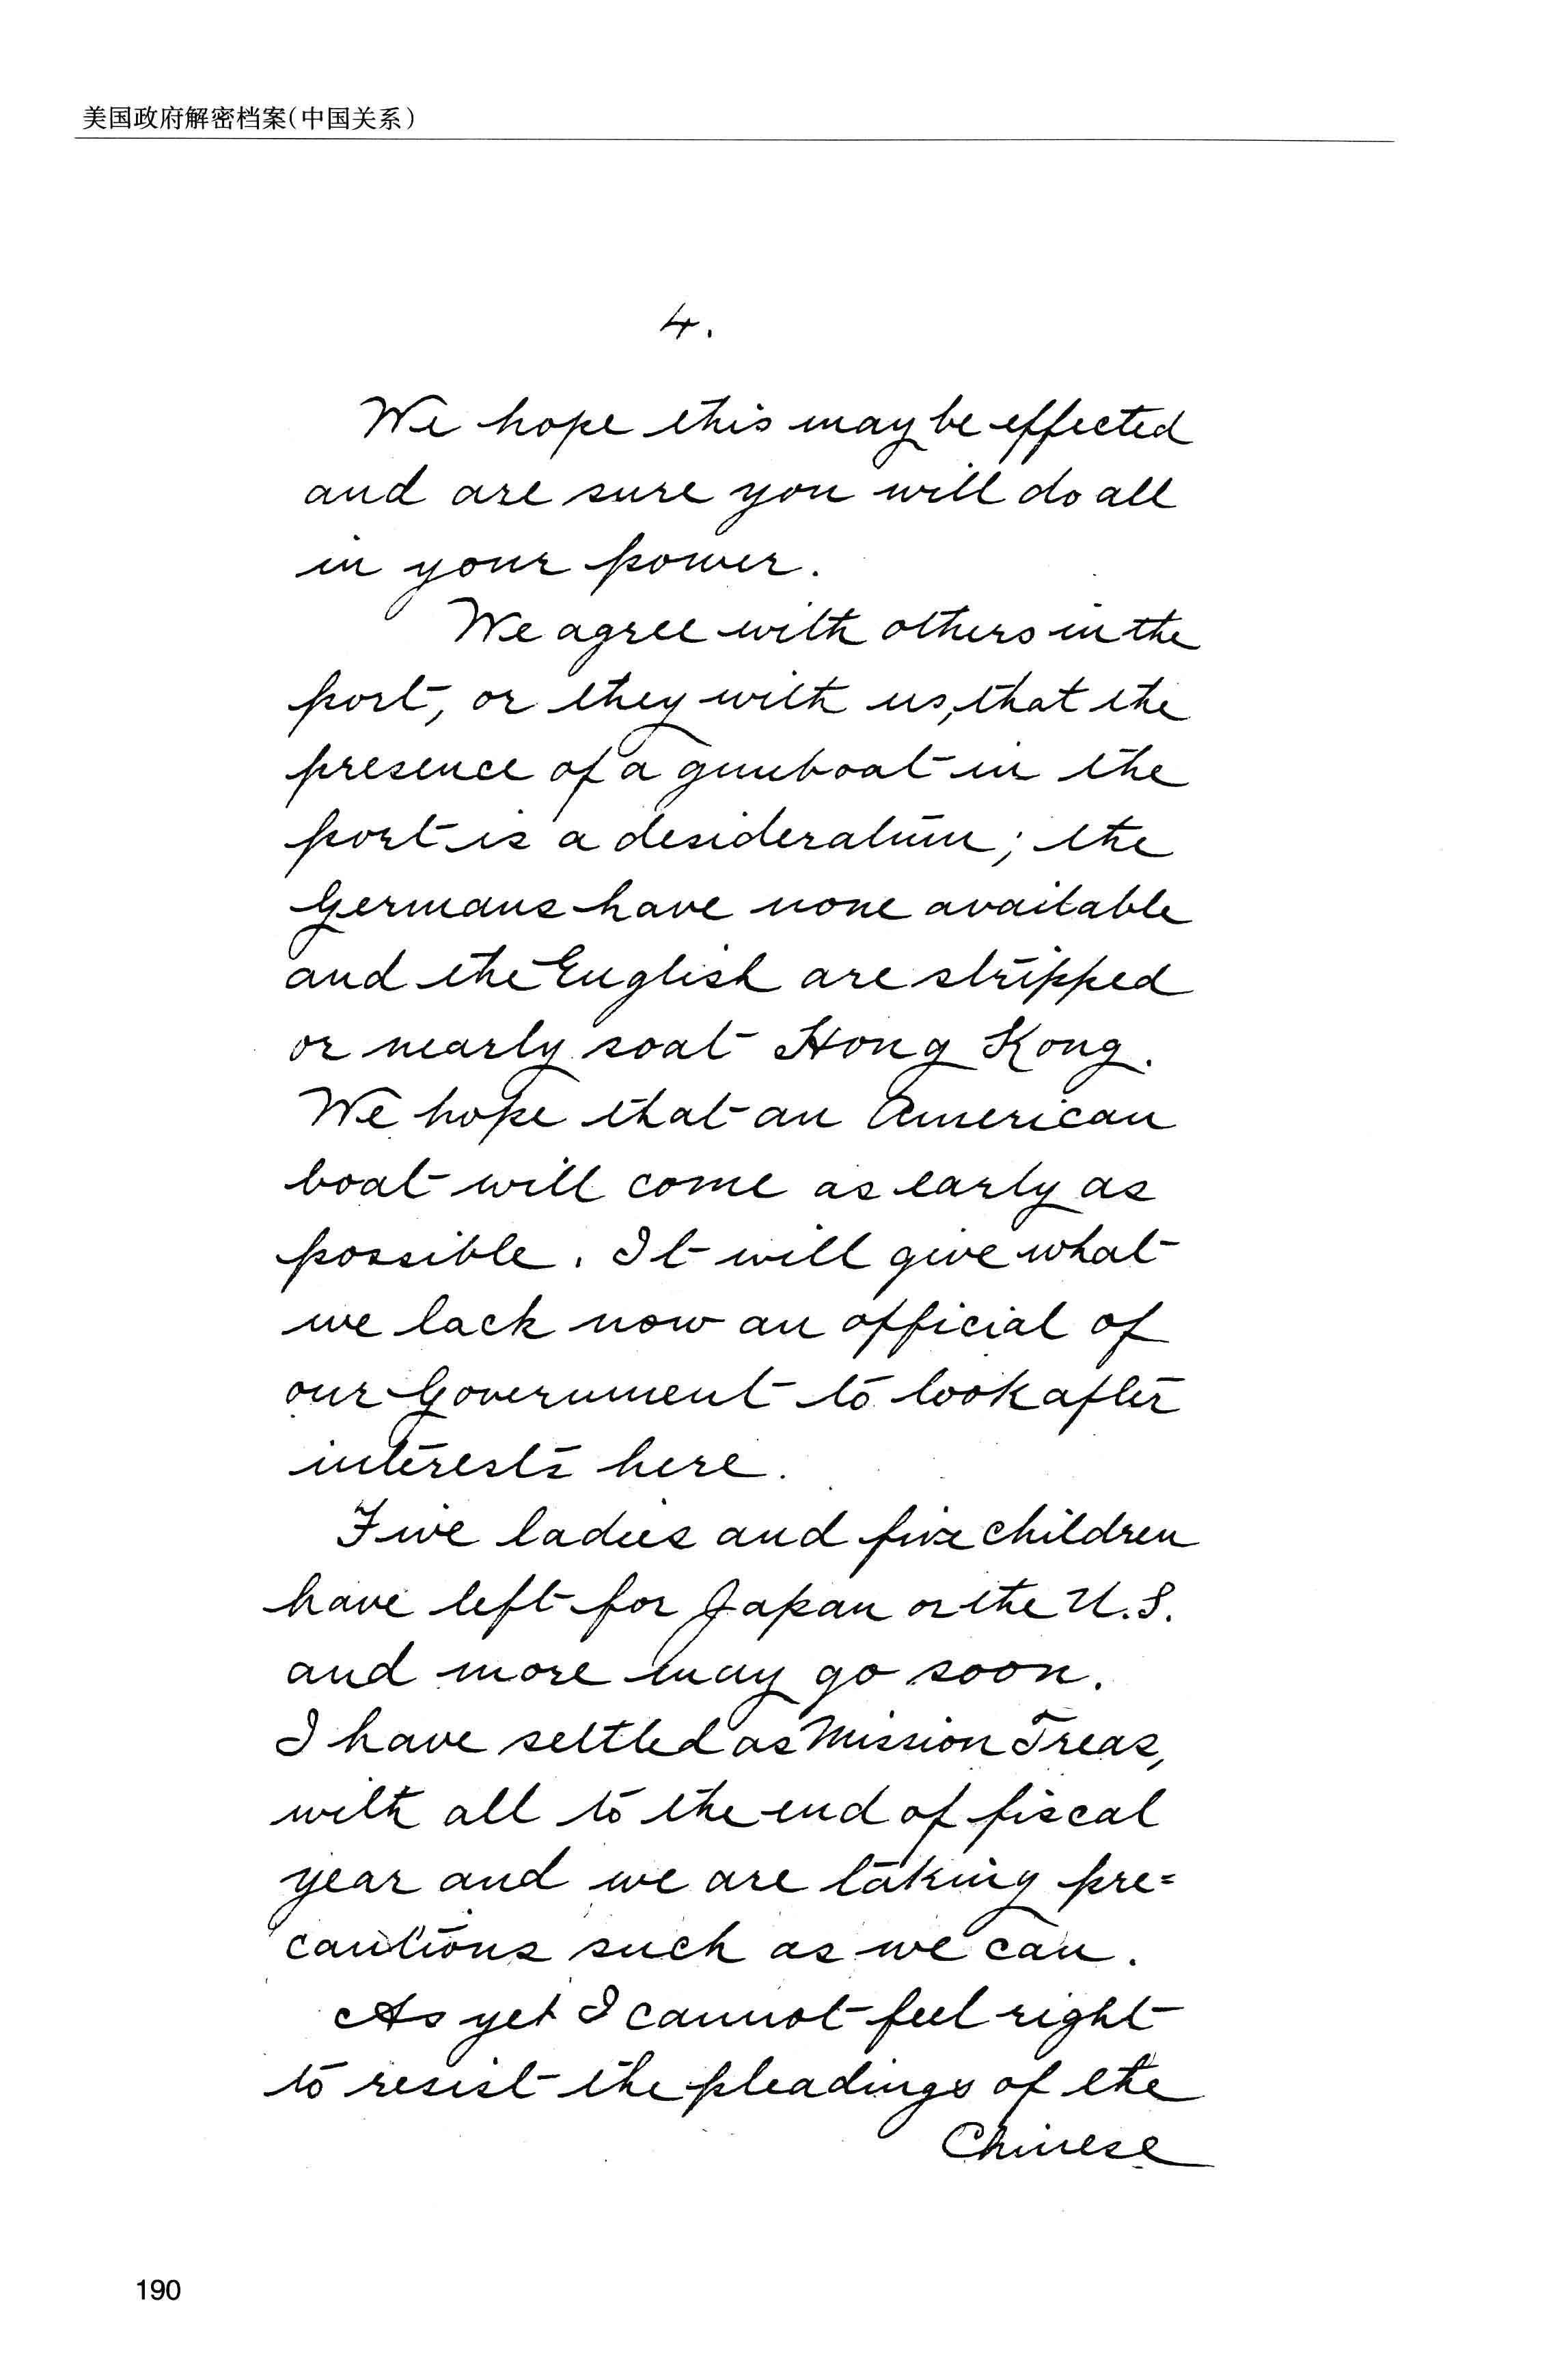 美国政府解密档案(中国关系)
4.
We hope this may be effected
and are sure you will do all
in your power.
We agree with others in the
port, or they with us, that the
presence of a gunboat in the
port is a desideratum; the
Germans have none available
and the English are stripped
or nearly so at Hong Kong.
We hope that an American
boat will come as early as
possible. It will give what
we lack now an official of
our Government to look after
interests here.
Five ladies and five children
have left for Japan or the U.S.
and more may go soon.
I have settled as Mission Treas,
with all to the end of fiscal
year and we are taking pre=
cautions such as we can.
As yet I cannot feel right
to resist the pleadings of the
Chinese
190